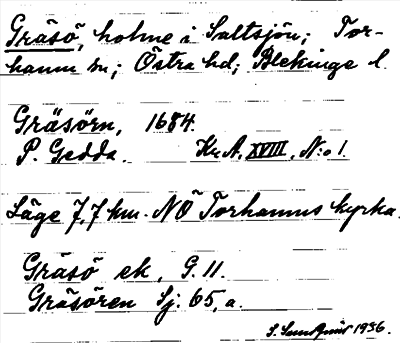 Gräsö, holme i Saltsjön; Tor-
hamn sn; Östra hd; Blekinge l.
Gräsörn, 1684.
P. Gedda. Kr. A. XVIII, N:o 1.
Läge 7,7 km. NÖ Torhamns kyrka.
Gräsö ek, G. 11.
Gräsören Sj. 65, a.
1936.